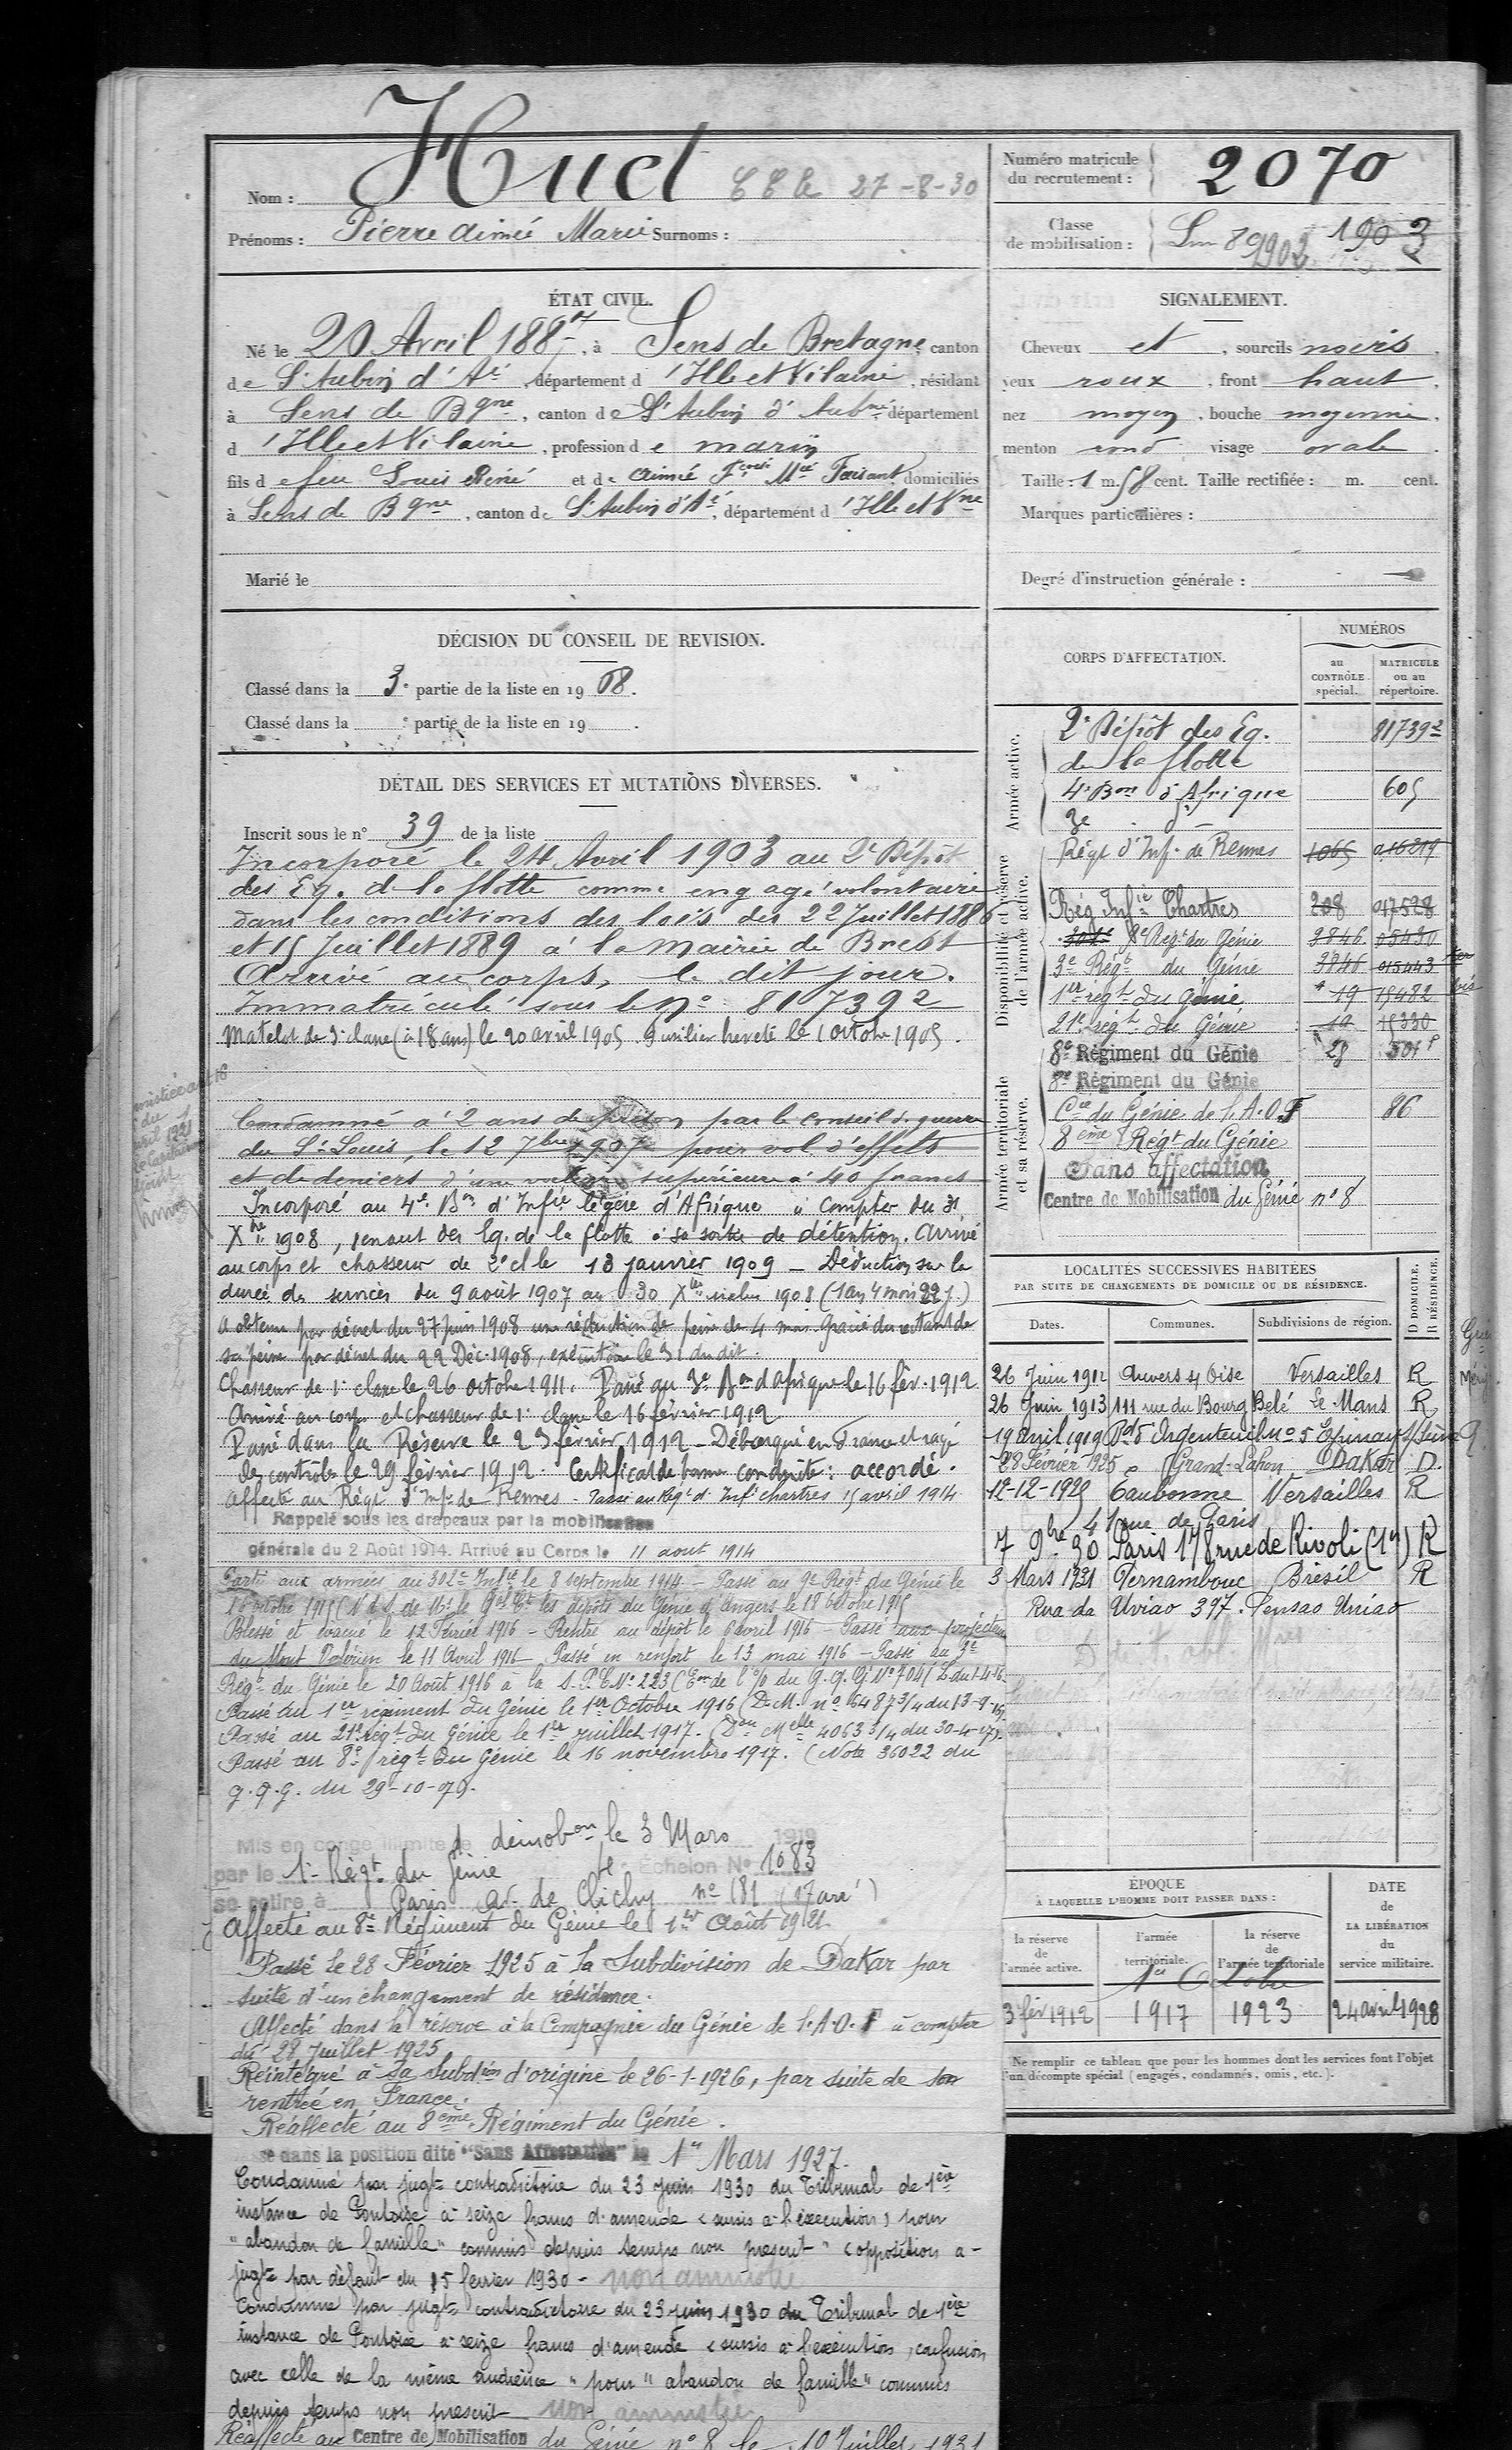 Nom : Huet CC le 27-8-30
Prénoms : Pierre aimé Marie Surnoms :
Numéro matricule du recrutement : 2070
Classe de mobilisation : 1902 1903
ÉTAT CIVIL.
Né le 20 Avril 1887, à Sens de Bretagne, canton
de St Aubin d'Aé, département d'Ille et Vilaine, résidant
à Sens de Bgne, canton de St Aubin d'Aubné département
d'Ille et Vilaine, profession de marin
fils de feu Louis René et de Aimée Fcoise Mie Faisant, domiciliés
à Sens de Bgne, canton de St Aubin d'Aé, département d'Ille et Vne
Marié le
SIGNALEMENT.
Cheveux et, sourcils noirs
yeux roux, front haut,
nez moyen, bouche moyenne,
menton rond visage ovale.
Taille : 1 m. 58 cent. Taille rectifiée : m. cent.
Marques particulières :
Degré d'instruction générale :
DÉCISION DU CONSEIL DE REVISION.
Classé dans la 3e partie de la liste en 1908.
Classé dans la e partie de la liste en 19 .
DÉTAIL DES SERVICES ET MUTATIONS DIVERSES.
Inscrit sous le n° 39 de la liste
Incorporé le 24 Avril 1903 au 2e Dépôt
des Eq. de la flotte comme engagé volontaire
dans les conditions des lois des 22 Juillet 1886
et 15 Juillet 1889 à la Mairie de Brest
Arrivé au corps, le dit jour.
Immatriculé sous le No 817392
Matelot de 3e classe (à 18 ans) le 20 avril 1905. Fusilier breveté le 1 octobre 1905.
Condamné à 2 ans de prison par le conseil de guerre
de St Louis, le 12 7bre 1907 pour vol d'effets
et de deniers d'une valeur supérieure à 40 francs
Incorporé au 4e Bon d'Infie légère d'Afrique à compter du 31
Xbre 1908, venant des Eq. de la flotte à sa sortie de détention. Arrivé
au corps et chasseur de 2e cl le 13 janvier 1909 - Déduction sur la
durée des services du 9 août 1907 au 30 Xbre inclus 1908 (1 an 4 mois 22 j.)
A obtenu par décret du 27 juin 1908 une réduction de peine de 4 mois. Gracié du restant de
sa peine par décret du 22 Déc. 1908, exécution le 31 du dit.
Chasseur de 1e classe le 26 octobre 1911. Passé au 3e Bon d'afrique le 16 fév. 1912
Arrivé au corps et chasseur de 1e classe le 16 février 1912
Passé dans la Réserve le 23 février 1912 - Débarqué en France et rayé
des contrôles le 29 février 1912. Certificat de bonne conduite : accordé.
Affecté au Régt d'Inf. de Rennes - Passé au Régt d'Infie Chartres 15 avril 1914
Rappelé sous les drapeaux par la mobilisation
générale du 2 Août 1914. Arrivé au Corps le 11 aout 1914
Parti aux armées au 302e Infie le 8 septembre 1914 - Passé au 9e Régt du Génie le
16 octobre 1915 (N d S de Mr le Gal Ct les dépôts du Génie d'Angers le 18 octobre 1915
Blessé et évacué le 12 Février 1916 - Rentré au dépôt le 6 avril 1916 - Passé aux projecteurs
du Mont Valérien le 11 Avril 1916 Passé en renfort le 13 mai 1916 - Passé au 3e
Régt du Génie le 20 Août 1916 à la S.P.C. No 223
Passé au 1er régiment du Génie le 1er Octobre 1916 (D. M. no 154873/4 du 13-9-16).
Passé au 21e régt du Génie le 1er juillet 1917. (Don Melle 4063 3/4 du 30-4-17).
Passé au 8e régt du Génie le 16 novembre 1917. (Note 36022 du
G.Q.G. du 29-10-17).
Mis en congé illimité de démobon le 3 Mars 1919
par le 1er Régt du Génie 4e Échelon No 1083
se retire à Paris av. de Clichy no 181 (17 arrt)
Affecté au 8e Régiment du Génie le 1er Août 1921.
Passé le 28 Février 1925 à la Subdivision de Dakar par
suite d'un changement de résidence.
Affecté dans la réserve à la Compagnie du Génie de l'A.O.F à compter
du 28 Juillet 1925
Réintégré à sa subdion d'origine le 26-1-1926, par suite de son
rentrée en France.
Réaffecté au 8ème Régiment du Génie.
sé dans la position dite "Sans Affectation" le 1er Mars 1927.
Condamné par jugt contradictoire du 23 juin 1930 du Tribunal de 1ère
instance de Pontoise à seize francs d'amende (sursis à l'exécution) pour
"abandon de famille" commis depuis temps non prescrit" (opposition à
jugt par défaut du 15 fevrier 1930 - non amnistié
Condamné par jugt contradictoire du 23 juin 1930 du Tribunal de 1ère
instance de Pontoise à seize francs d'amende (sursis à l'exécution, confusion
avec celle de la même audience" pour "abandon de famille" commis
depuis temps non prescrit non amnistié
Réaffecté au Centre de Mobilisation du Génie n° 8 le 10 Juillet 1931
CORPS D'AFFECTATION.
NUMÉROS
au CONTRÔLE spécial.
MATRICULE ou au répertoire.
Armée active.
2e Dépôt des Eq. 817392
de la flotte
4e Bon d'Afrique 605
3e d°
Disponibilité et réserve de l'armée active.
Régt d'Inf. de Rennes 1065 016319
Rég Infie Chartres 208 017528
302e 9e Régt du Génie 3846 05430
3e Régt du Génie 3846 015443
1er régt du Génie 19 15482
21e régt du Génie 19 15330
8e Régiment du Génie 28 501
Armée territoriale et sa réserve.
8e Régiment du Génie
Cie du Génie de l'A.O.F 86
8ème Régt du Génie
Sans affectation
Centre de Mobilisation du Génie n° 8
LOCALITÉS SUCCESSIVES HABITÉES
PAR SUITE DE CHANGEMENTS DE DOMICILE OU DE RÉSIDENCE.
Dates. Communes. Subdivisions de région. D DOMICILE. R RÉSIDENCE.
26 Juin 1912 Auvers s/ Oise Versailles R
26 Juin 1913 111 rue du Bourg Belé Le Mans R
19 Avril 1919 Bd d'Argenteuil no 5 Epinay s/Seine
28 Février 1925 Grand-Lahou Dakar D.
12-12-1925 Eaubonne Versailles R
41 rue de Paris
7 9bre 30 Paris 178 rue de Rivoli (1er) R
3 Mars 1931 Pernambouc Brésil R
Rua da Uniao 397. Pensao Uniao
ÉPOQUE
À LAQUELLE L'HOMME DOIT PASSER DANS :
la réserve de l'armée active.
l'armée territoriale.
la réserve de l'armée territoriale
DATE de LA LIBÉRATION du service militaire.
1er Octobre
3 fév 1912 1917 1923 24 avril 1928
Ne remplir ce tableau que pour les hommes dont les services font l'objet
d'un décompte spécial (engagés, condamnés, omis, etc.).